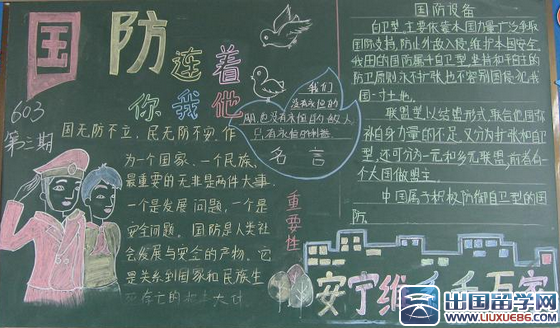 国防连着
你我他
603
第二期
国无防不立,民无防不安.作
为一个国家、一个民族,
最重要的无非是两件大事.
一个是发展问题,一个是
安全问题。国防是人类社
会发展与安全的产物。它
是关系到国家和民族生
死存亡的
重要性
我们
没有永恒的
朋
也没有永恒的敌人
只有永恒的利益
名言
国防设备
自卫型,主要依靠本国力量广泛争取
国际支持,防止外敌入侵,维护本国安全.
我国的国防属于自卫型,坚持和平自主的
防卫原则,永不扩张,也不容别国侵犯我
国一寸土地.
联盟型以结盟形式,联合他国弥
补自身力量的不足.又分为扩张和自卫
型,还可分为一元和多元联盟,前者有一
个大国做盟主.
中国属于积极防御自卫型的国
防.
安宁维系千万家
出国留学网
WWW.LIUXUE86.COM